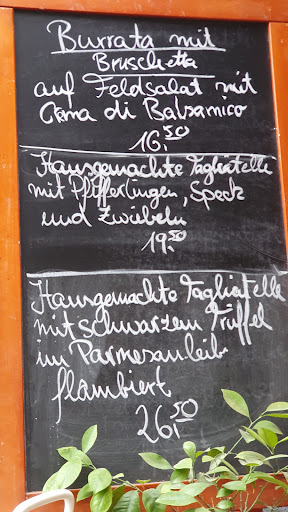 Burrata mit
Bruschetta
auf Feldsalat mit
Crema di Balsamico
16.50
Hausgemachte Tagliatelle
mit Pfifferlingen, Speck
und Zwiebeln
19.50
Hausgemachte Tagliatelle
mit schwarzem Trüffel
im Parmesanleib
flambiert
26.50